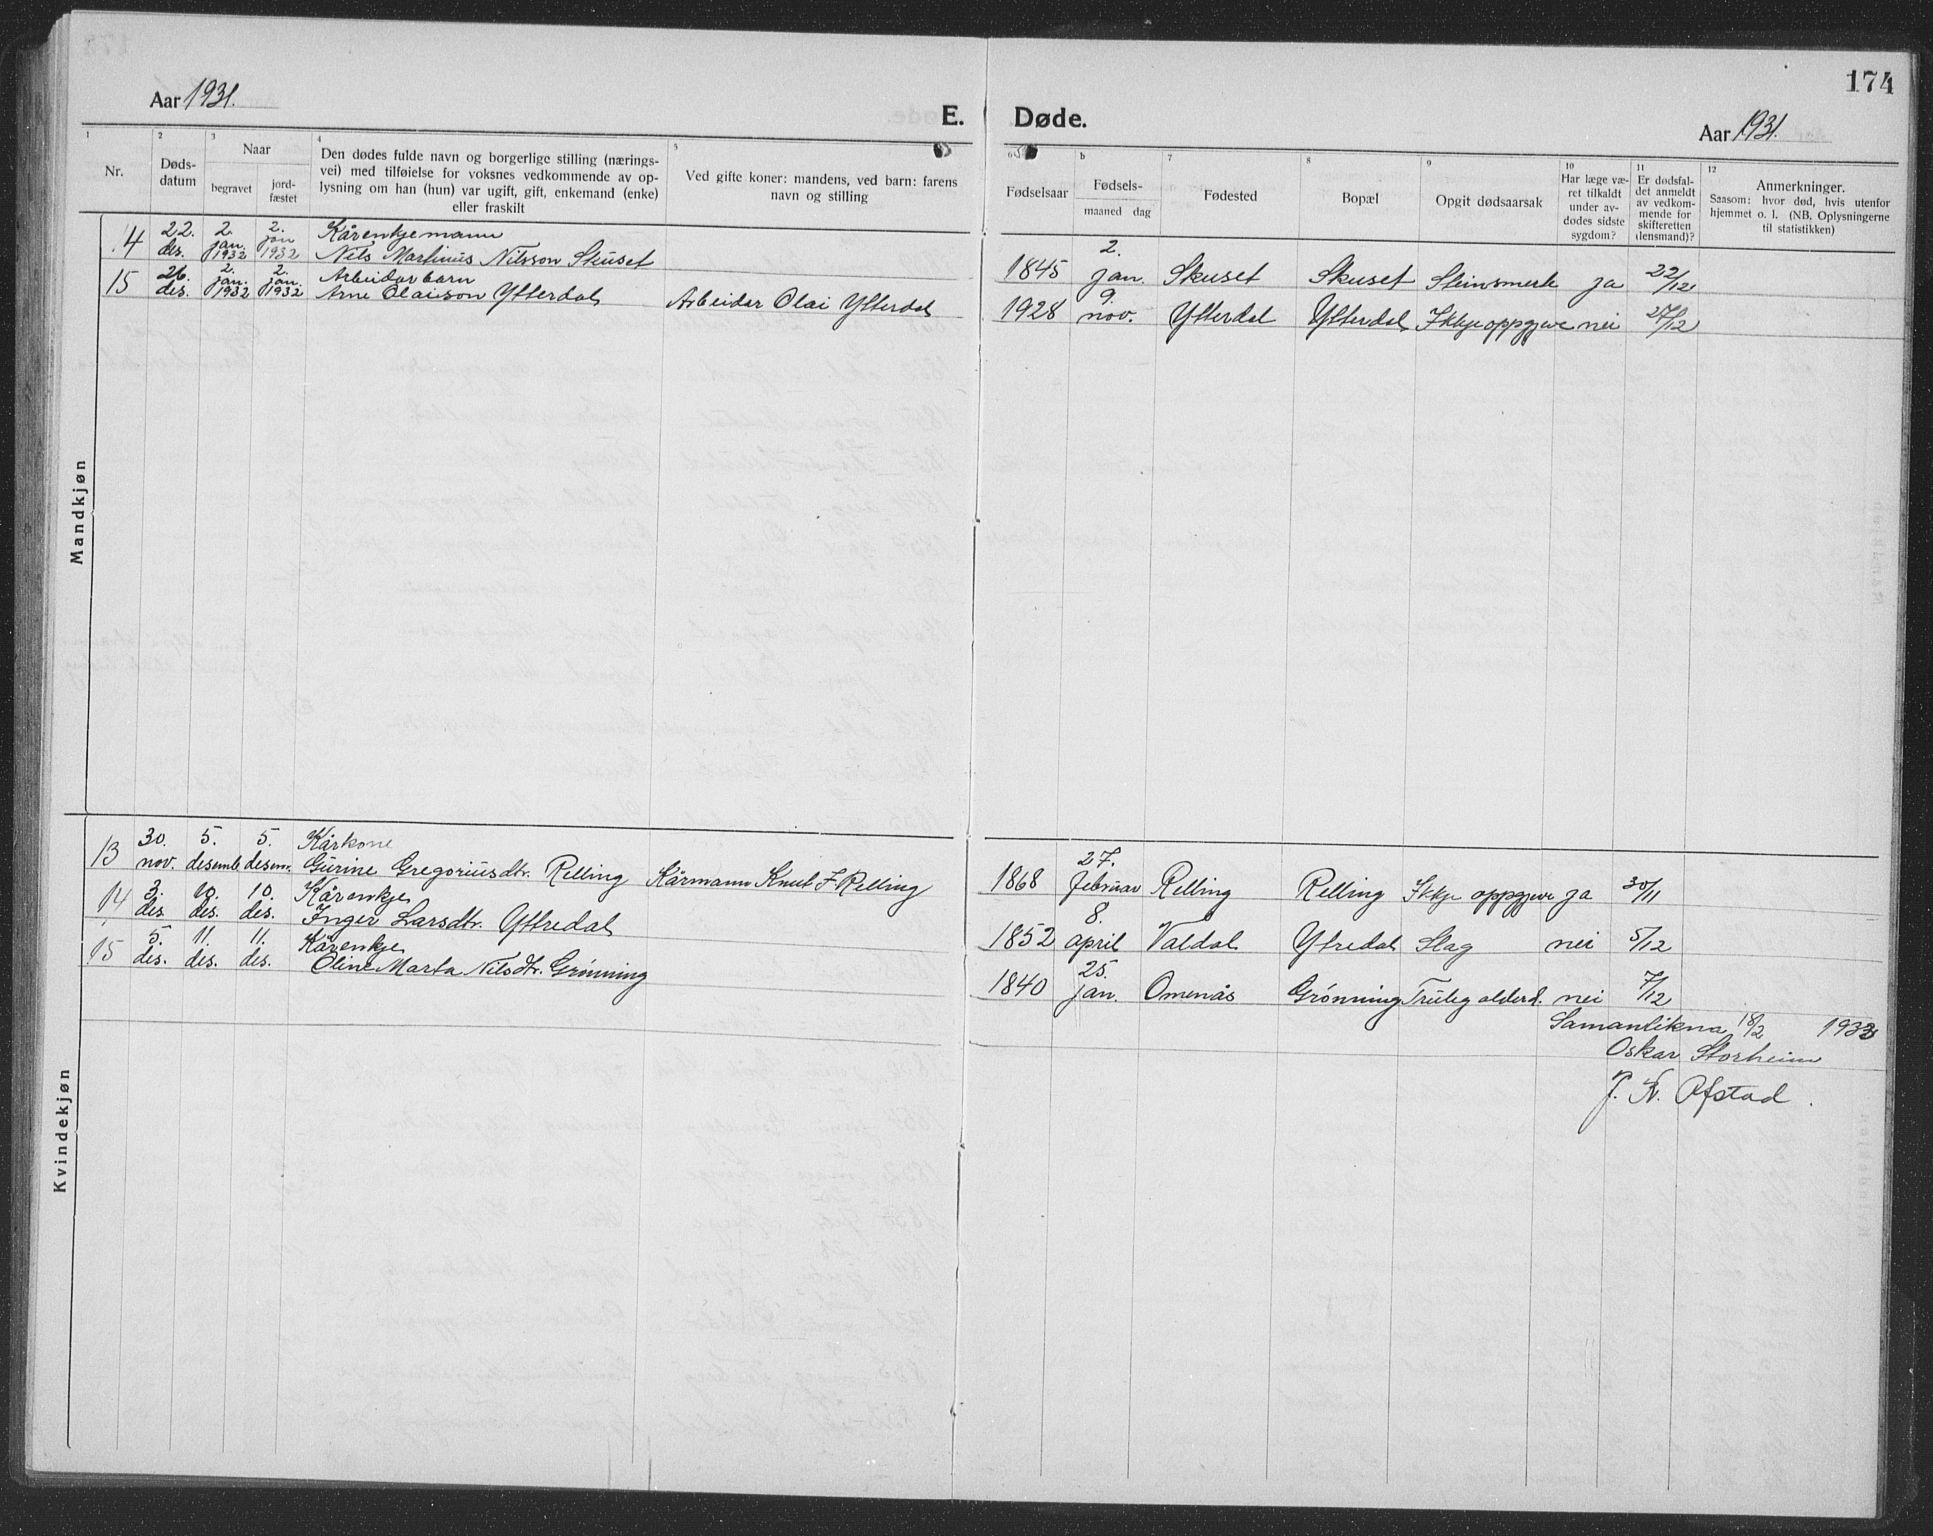 174
Aar 1931.
E. Døde.
Aar 1931.
1
2
3
4
5
6
b
7
8
9
10
11
12
Nr.
Døds-
datum
Naar
begravet
jord-
fæstet
Den dødes fulde navn og borgerlige stilling (nærings-
vei) med tilføielse for voksnes vedkommende av op-
lysning om han (hun) var ugift, gift, enkemand (enke)
eller fraskilt
Ved gifte koner: mandens, ved barn: farens
navn og stilling
Fødselsaar
Fødsels-
maaned dag
Fødested
Bopæl
Opgit dødsaarsak
Har læge væ-
ret tilkaldt
under av-
dødes sidste
sygdom?
Er dødsfal-
det anmeldt
av vedkom-
mende for
skifteretten
(lensmand)?
Anmerkninger.
Saasom: hvor død, hvis utenfor
hjemmet o. l. (NB. Oplysningerne
til statistikken)
Mandkjøn
22. 2. 2. Kårenkjemann
14 des. jan. 1932 jan 1932 Nils Martinus Nilsson Skuset
2.
1845 jan. Skuset Skuset Steinsmerte ja 22/12
26. 2. 2. Arbeidarbarn
15 des. jan. 1932 jan. 1932 Arne Olaison Ytterdal Arbeidar Olai Ytterdal
9.
1928 nov. Ytterdal Ytterdal Ikkje oppgjeve nei 27/12
Kvindekjøn
30. 5. 5. Kårkone
13 nov. desemb. desem. Gurine Gregoriusdtr. Relling Kårmann Knut J Relling
27.
1868 februar Relling Relling Ikkje oppgjeve ja 30/11
3. 10. 10. Kårenkje
14 des. des. des. Inger Larsdtr. Ytredal
8.
1852 april Valdal Ytredal Slag nei 5/12
5. 11. 11. Kårenkje
15 des. des. des. Oline Marta Nilsdtr. Grønning
25.
1840 jan. Omenås Grønning Truleg alderd. nei 7/12
Samanlikna 18/2 1933
Oskar Storheim
J. K. Ofstad.